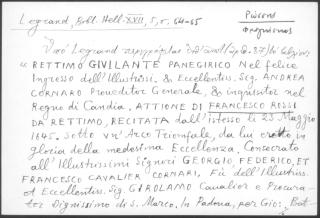 Legrand, Bibl. Hell. XVII, 5, σ. 64-65
" RETTIMO GIVILANTE PANEGIRICO Nel felice
Ingresso dell'Illustriss. & Eccellentiss. Sig. ANDREA
CORNARO Proveditor Generale, & inquisitor nel
Regno di Candia. ATTIONE DI FRANCESCO ROSSI
DA RETTIMO, RECITATA dall'istesso li 23 Maggio
1645. Sotto vn'Arco Trionfale, da lui eretto in
gloria della medesima Eccellenza, Consecrato
all'Illustrissimi Signori GEORGIO, FEDERICO, ET
FRANCESCO CAVALIER CORNARI, Fij dell'Illustriss.
et Eccellentiss. Sig. GIROLAMO Cavalier e Procura-
tor Dignissimo di S. Marco. In Padova, per Gio: